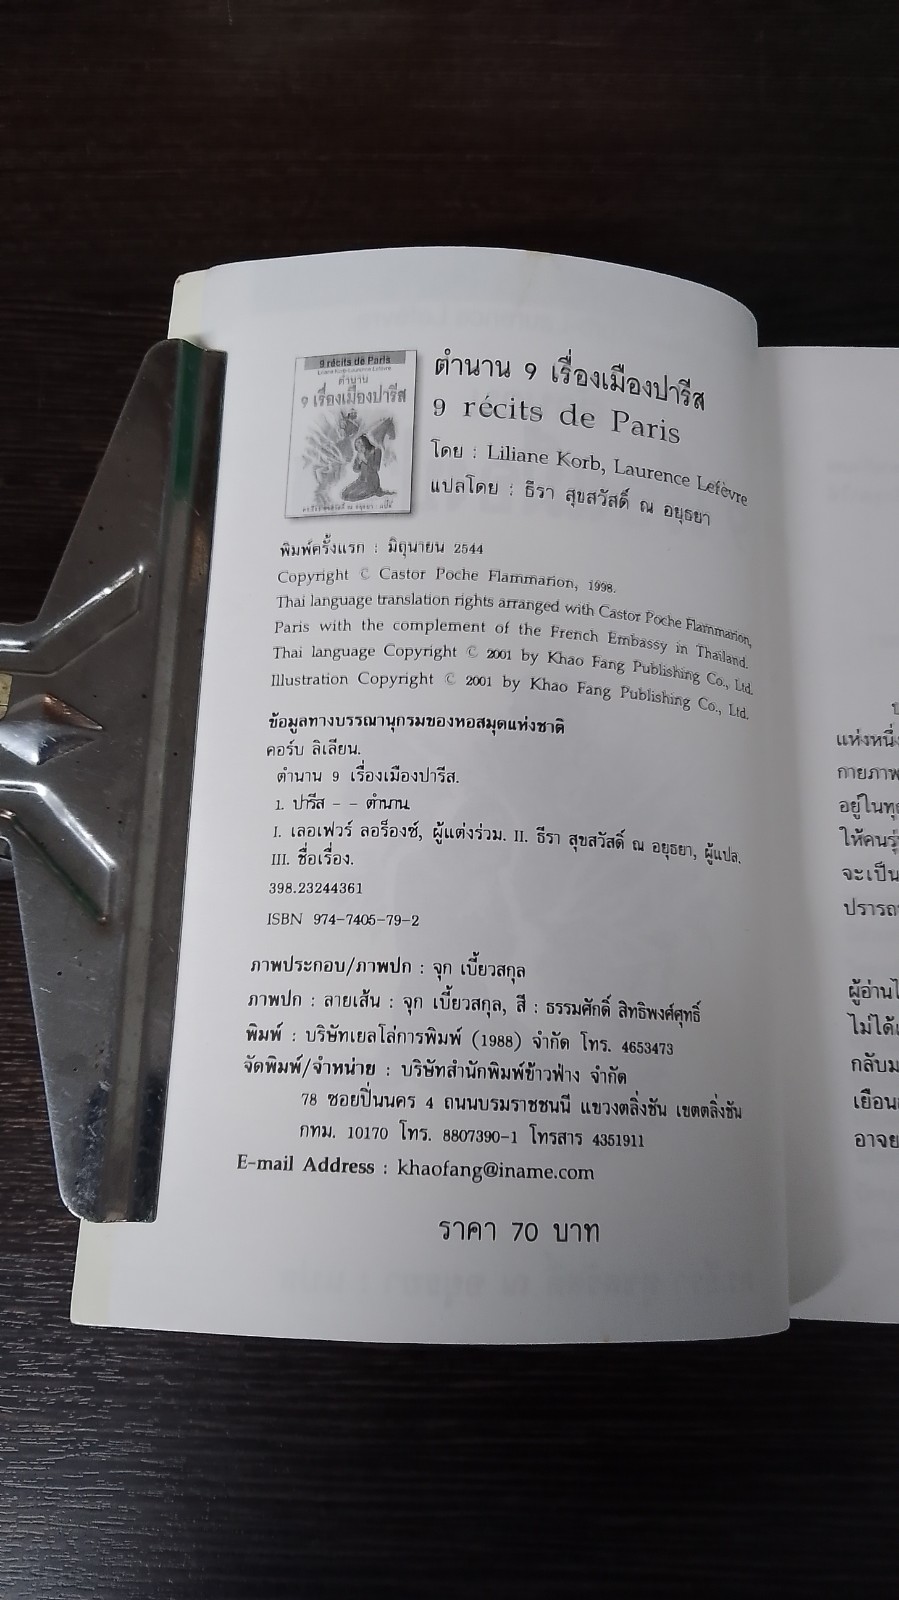 9 récits de Paris
Liliane Korb-Laurence Lefèvre
ตำนาน
๑ เรื่องเมืองปารีส
ตำนาน ๑ เรื่องเมืองปารีส
9 récits de Paris
โดย : Liliane Korb, Laurence Lefèvre
แปลโดย : ธีรา สุขสวัสดิ์ ณ อยุธยา
พิมพ์ครั้งแรก : มิถุนายน 2544
Copyright © Castor Poche Flammarion, 1998.
Thai language translation rights arranged with Castor Poche Flammarion,
Paris with the complement of the French Embassy in Thailand.
Thai language Copyright © 2001 by Khao Fang Publishing Co., Ltd.
Illustration Copyright © 2001 by Khao Fang Publishing Co., Ltd.
ข้อมูลทางบรรณานุกรมของหอสมุดแห่งชาติ
คอร์บ ลิเลียน.
ตำนาน 9 เรื่องเมืองปารีส.
1. ปารีส - - ตำนาน
I. เลอเฟวร์ ลอร็องซ์, ผู้แต่งร่วม. II. ธีรา สุขสวัสดิ์ ณ อยุธยา, ผู้แปล.
III. ชื่อเรื่อง.
398.23244361
ISBN 974-7405-79-2
ภาพประกอบ/ภาพปก : จุก เบี้ยวสกุล
ภาพปก : ลายเส้น : จุก เบี้ยวสกุล, สี : ธรรมศักดิ์ สิทธิพงศ์ศุทธิ์
พิมพ์ : บริษัทเยลโล่การพิมพ์ (1988) จำกัด โทร. 4653473
จัดพิมพ์/จำหน่าย : บริษัทสำนักพิมพ์ข้าวฟ่าง จำกัด
78 ซอยปิ่นนคร 4 ถนนบรมราชชนนี แขวงตลิ่งชัน เขตตลิ่งชัน
กทม. 10170 โทร. 8807390-1 โทรสาร 4351911
E-mail Address : khaofang@iname.com
ราคา 70 บาท
แห่งหนึ่ง
กายภาพ
อยู่ในทุก
ให้คนรุ่
จะเป็น
ปรารถ
ผู้อ่าน
ไม่ได้
กลับม
เยือน
อาจย